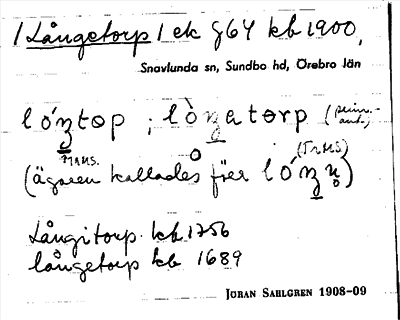 /Långetorp/ ek §64 kb 1900,
Snavlunda sn, Sundbo hd, Örebro län
lóʒtop ; lòʒatorp
MRMS.
(ägaren kallades förr ló
Långitorp kb 1756
långetorp kb 1689
JÖRAN SAHLGREN 1908-09